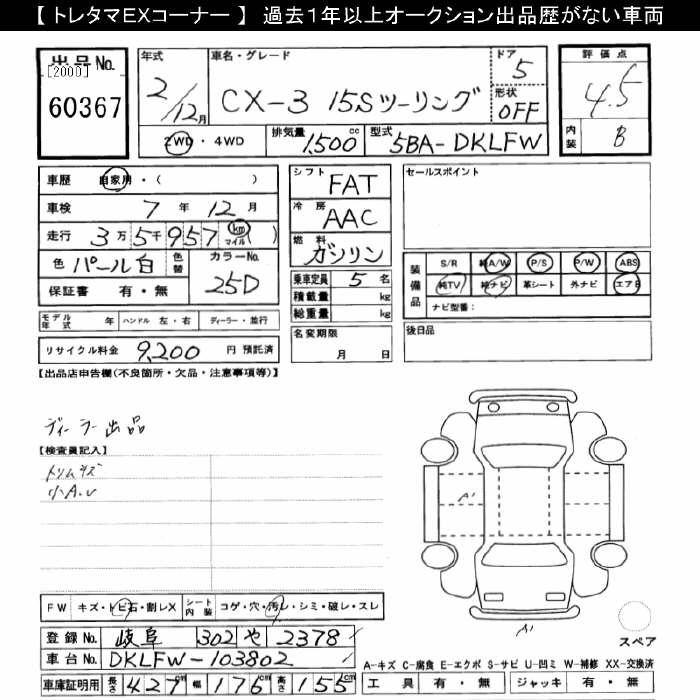 【 トレタマEXコーナー 】 過去１年以上オークション出品歴がない車両
出品No.
[2000]
60367
年式 2/12月
車名・グレード CX-3 15Sツーリング
ドア 5
形状 OFF
2WD・4WD
排気量 1,500 cc
型式 5BA-DKLFW
評価点 4.5
内装 B
車歴 自家用・( )
車検 7年 12月
走行 3万5千957 (km マイル)
色 パール白 色替
カラーNo. 25D
保証書 有・無
シフト FAT
冷房 AAC
燃料 ガソリン
乗車定員 5名
積載量 kg
総重量 kg
名変期限 月 日
セールスポイント
装備品 S/R 純A/W P/S P/W ABS
純TV 純ナビ 革シート 外ナビ エアB
ナビ型番:
後日品
モデル年式 年 ハンドル 左・右 ディーラー・並行
リサイクル料金 9,200 円 預託済
【出品店申告欄(不良箇所・欠品・注意事項等)】
ディーラー出品
【検査員記入】
トリムキズ
小A.U
A'
A'
スペア
FW キズ・トビ石・割レX シート内装 コゲ・穴・汚レ・シミ・破レ・スレ
登録No. 岐阜 302 や 2378
車台No. DKLFW-103802
車庫証明用 長さ 427cm 幅 176cm 高さ 155cm
A-キズ C-腐食 E-エクボ S-サビ U-凹ミ W-補修 XX-交換済
工具 有・無 ジャッキ 有・無